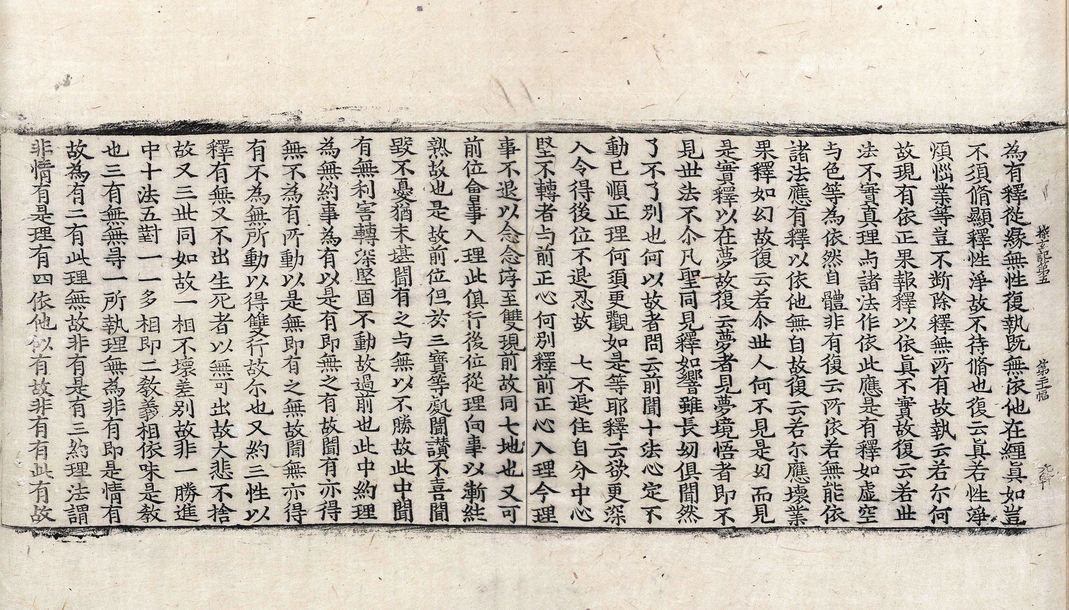 探玄記第五
第三十幅
為有釋從緣無性復執既無依他在經真如豈
不須脩顯釋性淨故不待脩也復云真若性淨
煩惱業等豈不斷除釋無所有故執云若尒何
故現有依正果報釋以依真不實故復云若世
法不實真理与諸法作依此應是有釋如虛空
与色等為依然自體非有復云所依若無能依
諸法應有釋以依他無自故復云若尒應壞業
果釋如幻故復云若尒世人何不見是幻而見
是實釋以在夢故復云夢者見夢境悟者即不
見世法不尒凡聖同見釋如響雖長幼俱聞然
了不了別也何以故者問云前聞十法心定不
動已順正理何須更觀如是等耶釋云欲更深
入令得後位不退忍故　七不退住自分中心
堅不轉者与前正心何別釋前正心入理今理
事不退以念念淳至雙現前故同七地也又可
前位會事入理此俱行後位從理向事以漸純
熟故也是故前位但於三寶等處聞讃不喜聞
毀不憂猶未堪聞有之与無以不勝故此中聞
有無利害轉深堅固不動故過前也此中約理
為無約事為有以是有即無之有故聞有亦得
無不為有所動以是無即有之無故聞無亦得
有不為無所動以得雙行故尒也又約三性以
釋有無又不出生死者以無可出故大悲不捨
故又三世同如故一相不壞差別故非一勝進
中十法五對一一多相即二教義相依味是教
也三有無無㝵一所執理無為非有即是情有
故為有二有此理無故非有是有三約理法謂
非情有是理有四依他似有故非有有此有故